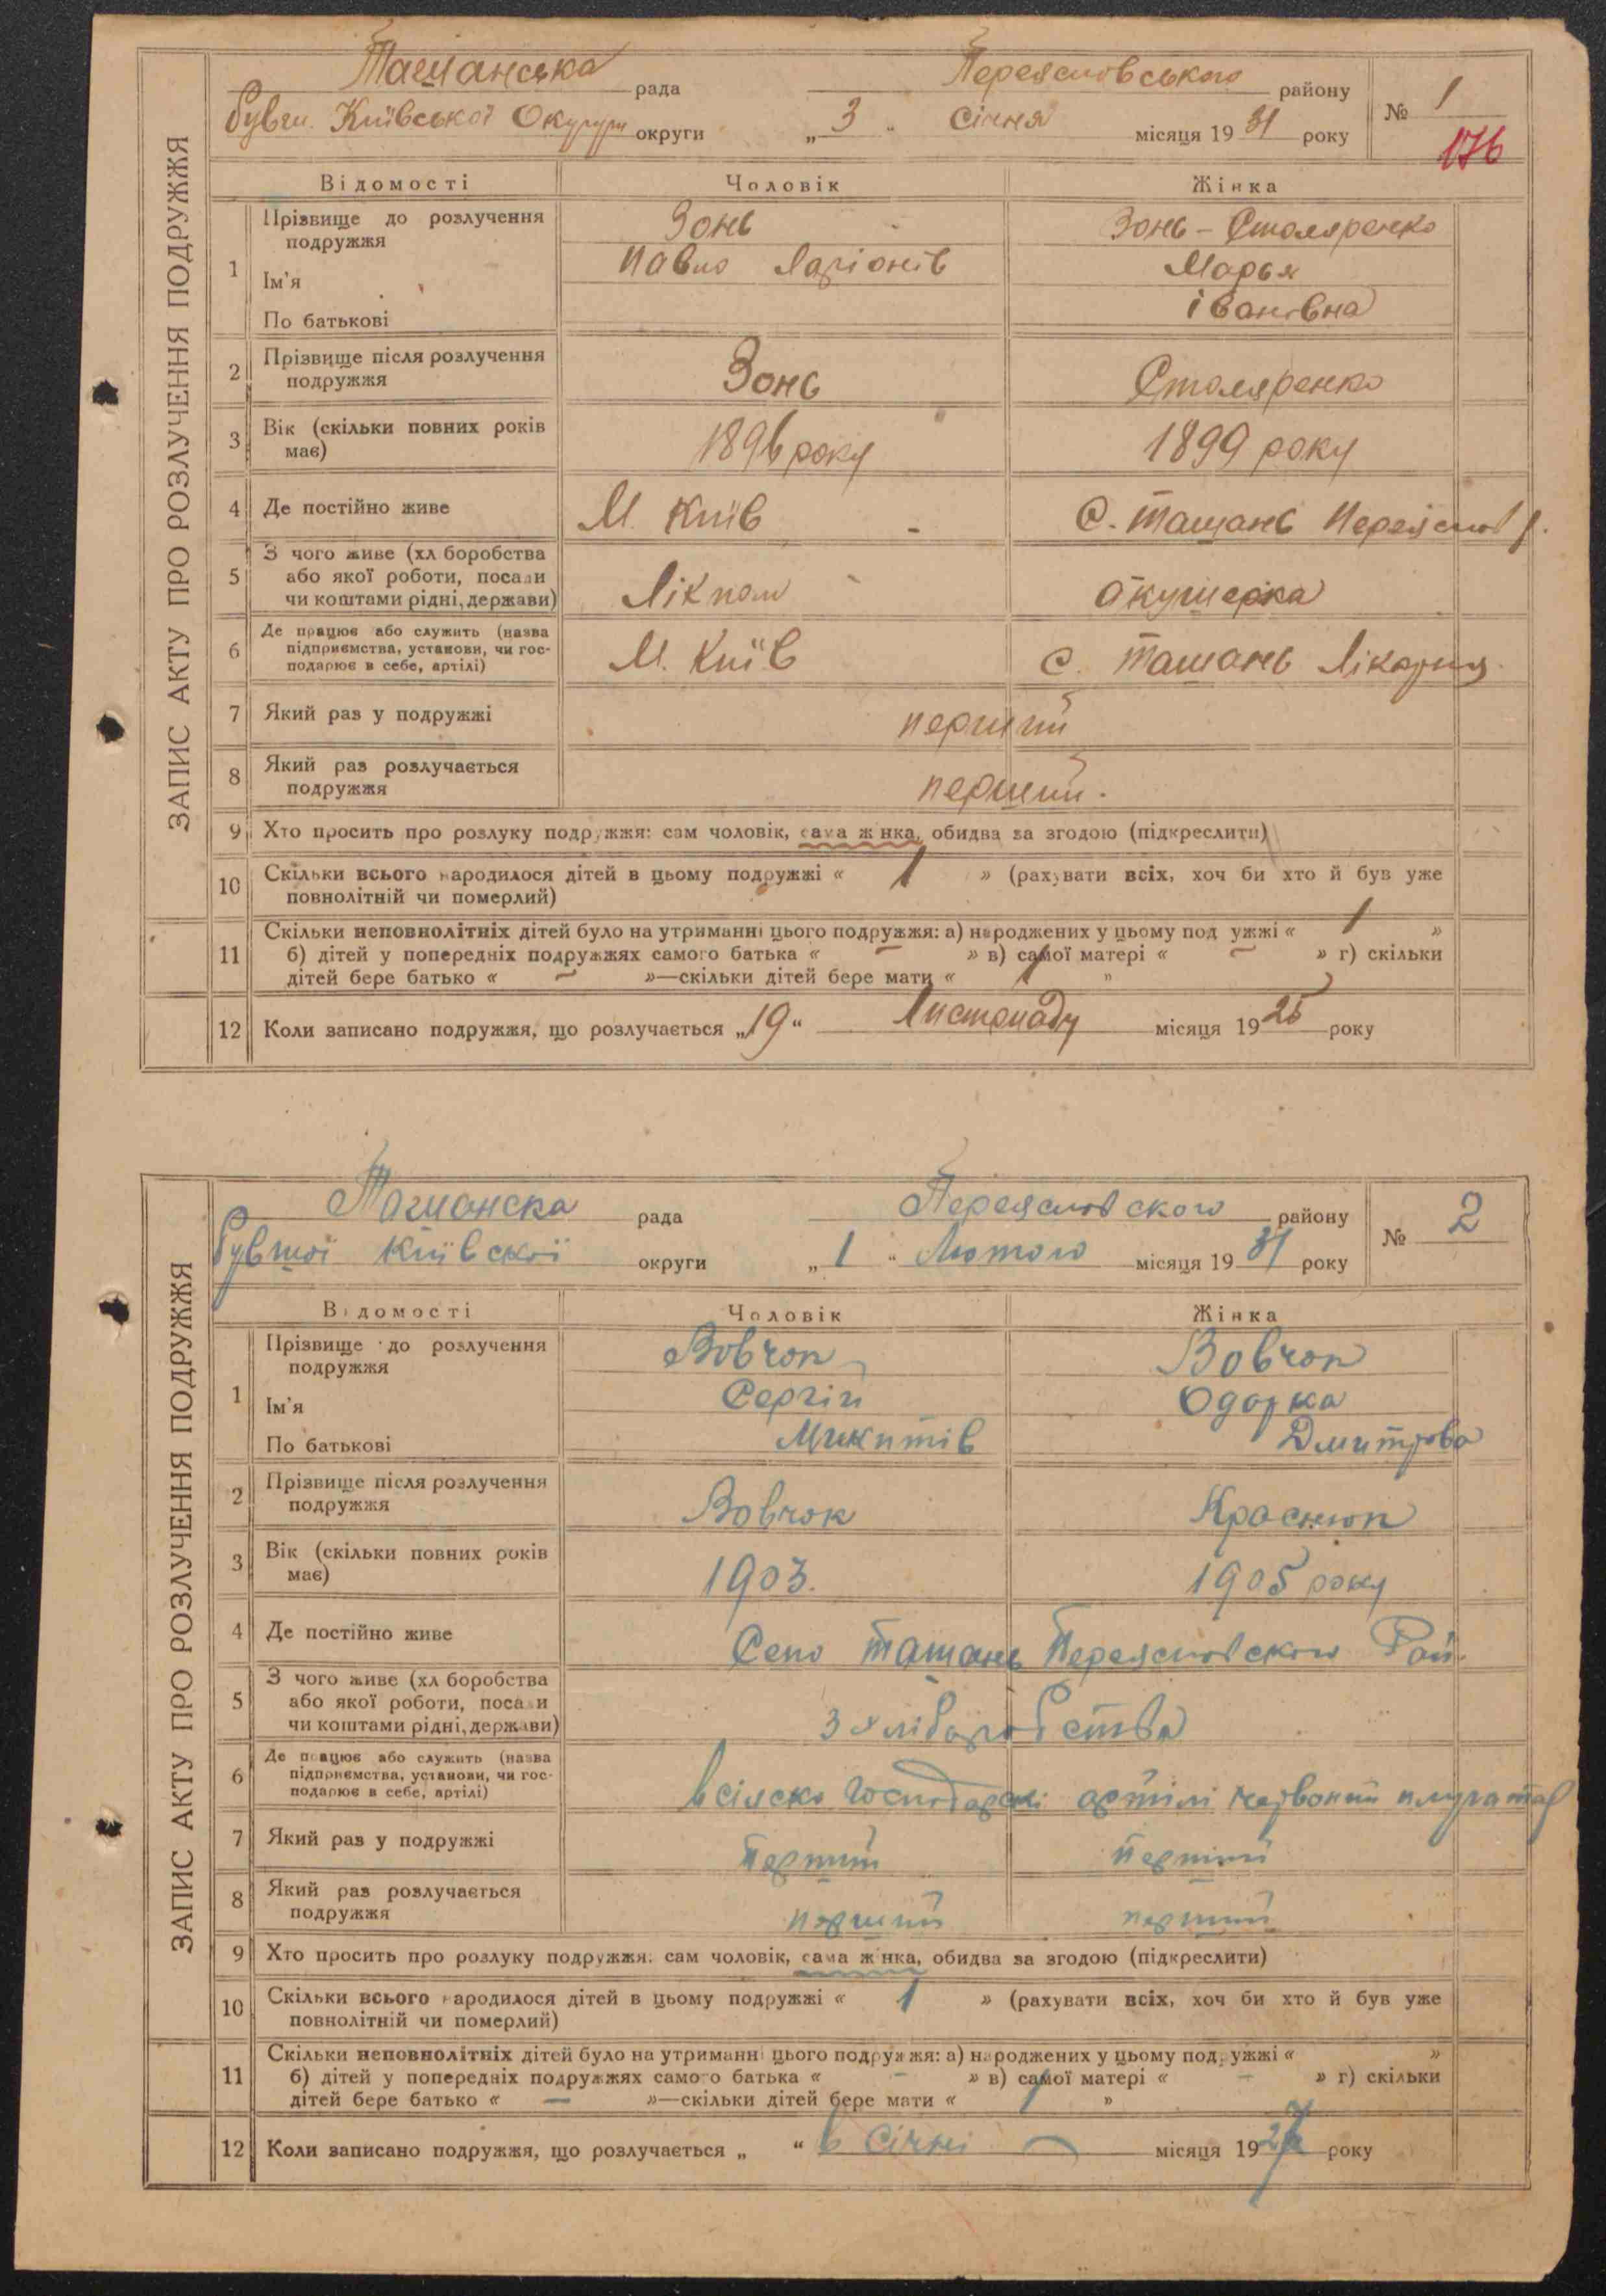 Ташанська рада Переясловського району
бувш. Київської Округи округи „ 3 “ Січня місяця 19 31 року № 1
176
ЗАПИС АКТУ ПРО РОЗЛУЧЕННЯ ПОДРУЖЖЯ
Відомості Чоловік Жінка
1 Прізвище до розлучення подружжя Зонь Зонь - Столяренко
Ім'я Павло Ларіонів Марья
По батькові Івановна
2 Прізвище після розлучення подружжя Зонь Столяренко
3 Вік (скільки повних років має) 1896 року 1899 року
4 Де постійно живе М. Київ С. Ташань Переяслов р.
5 З чого живе (хліборобства
або якої роботи, посади
чи коштами рідні, держави) Лікпом Акушерка
6 Де працює або служить (назва
підприємства, установи, чи гос-
подарює в себе, артілі) М. Київ С. Ташань Лікарня
7 Який раз у подружжі перший
8 Який раз розлучається подружжя перший.
9 Хто просить про розлуку подружжя: сам чоловік, сама жінка, обидва за згодою (підкреслити)
10 Скільки всього народилося дітей в цьому подружжі « 1 » (рахувати всіх, хоч би хто й був уже
повнолітній чи померлий)
11 Скільки неповнолітніх дітей було на утриманні цього подружжя: а) народжених у цьому подружжі « 1 »
б) дітей у попередніх подружжях самого батька « – » в) самої матері « – » г) скільки
дітей бере батько « – »—скільки дітей бере мати « 1 »
12 Коли записано подружжя, що розлучається „19“ Листопаду місяця 19 25 року
Ташанска рада Переясловского району
бувшої Київскої округи „ 1 “ Лютого місяця 19 31 року № 2
ЗАПИС АКТУ ПРО РОЗЛУЧЕННЯ ПОДРУЖЖЯ
Відомості Чоловік Жінка
1 Прізвище до розлучення подружжя Вовчок Вовчок
Ім'я Сергій Одарка
По батькові Микитів Дмитрова
2 Прізвище після розлучення подружжя Вовчок Краснюк
3 Вік (скільки повних років має) 1903. 1905 року
4 Де постійно живе Село Ташань Переясловского Рай.
5 З чого живе (хліборобства
або якої роботи, посади
чи коштами рідні, держави) З хліборобства
6 Де працює або служить (назва
підприємства, установи, чи гос-
подарює в себе, артілі) в сілско господарскі артілі червоний плугатар
7 Який раз у подружжі Перший Перший
8 Який раз розлучається подружжя перший перший
9 Хто просить про розлуку подружжя: сам чоловік, сама жінка, обидва за згодою (підкреслити)
10 Скільки всього народилося дітей в цьому подружжі « 1 » (рахувати всіх, хоч би хто й був уже
повнолітній чи померлий)
11 Скільки неповнолітніх дітей було на утриманні цього подружжя: а) народжених у цьому подружжі « »
б) дітей у попередніх подружжях самого батька « – » в) самої матері « – » г) скільки
дітей бере батько « – »—скільки дітей бере мати « 1 »
12 Коли записано подружжя, що розлучається „ “ в Січні місяця 19 року